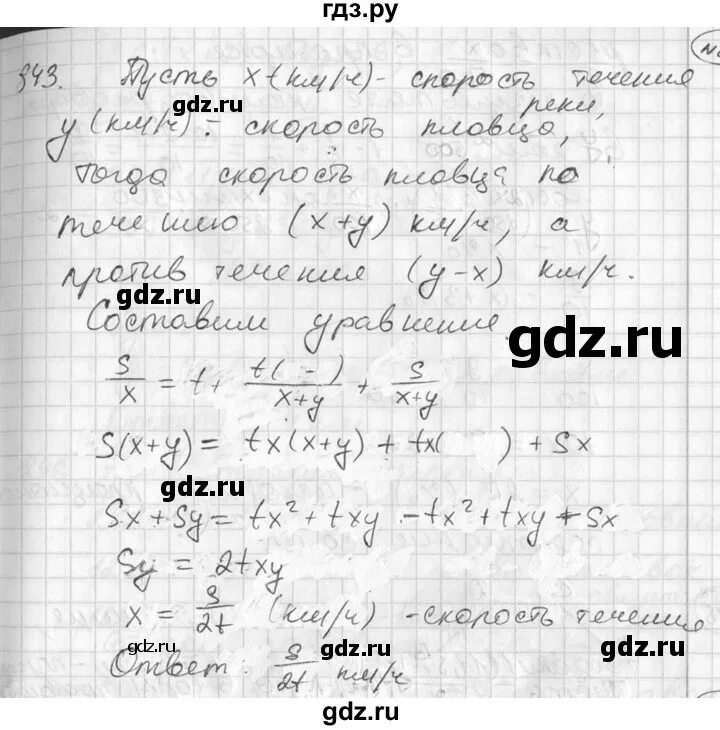 гдз.ру
343. Пусть x (км/ч) - скорость течения
реки,
gdz.ru
y (км/ч) - скорость пловца,
тогда скорость пловца по
течению (x+y) км/ч, а
против течения (y-x) км/ч.
gdz.ru
Составим уравнение
gdz.ru
s/x = t + t( - )/(x+y) + s/(x+y)
S(x+y) = tx(x+y) + tx( ) + Sx
gdz.ru
Sx + Sy = tx² + txy - tx² + txy + Sx
Sy = 2txy
x = s/2t (км/ч) - скорость течения
gdz.ru
gdz.ru
Ответ: s/2t км/ч
gdz.ru
gdz.ru